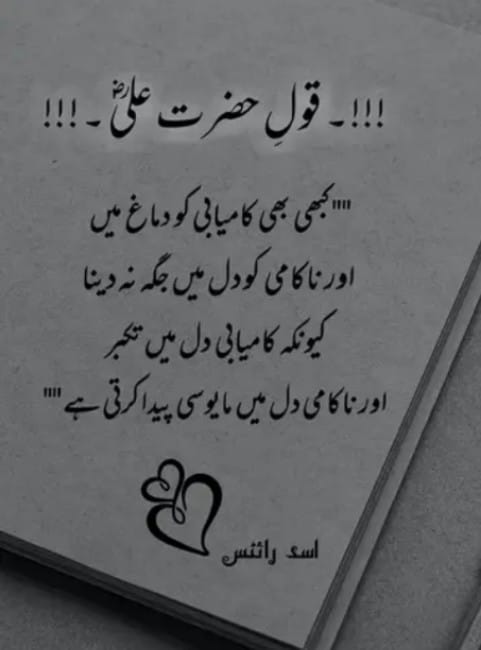 !!!۔ قولِ حضرت علیؓ ۔!!!
""کبھی بھی کامیابی کو دماغ میں
اور ناکامی کو دل میں جگہ نہ دینا
کیونکہ کامیابی دل میں تکبر
اور ناکامی دل میں مایوسی پیدا کرتی ہے ""
اسد رائٹس